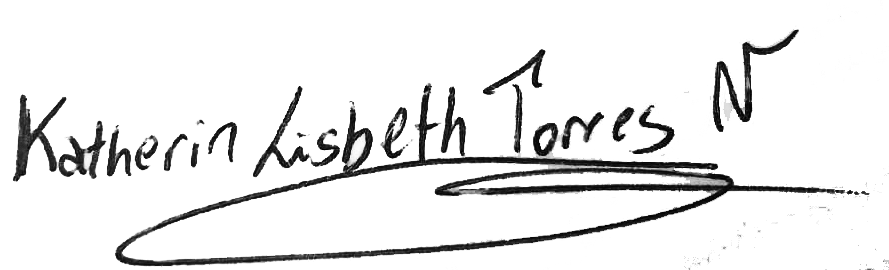 Katherin Lisbeth Torres N